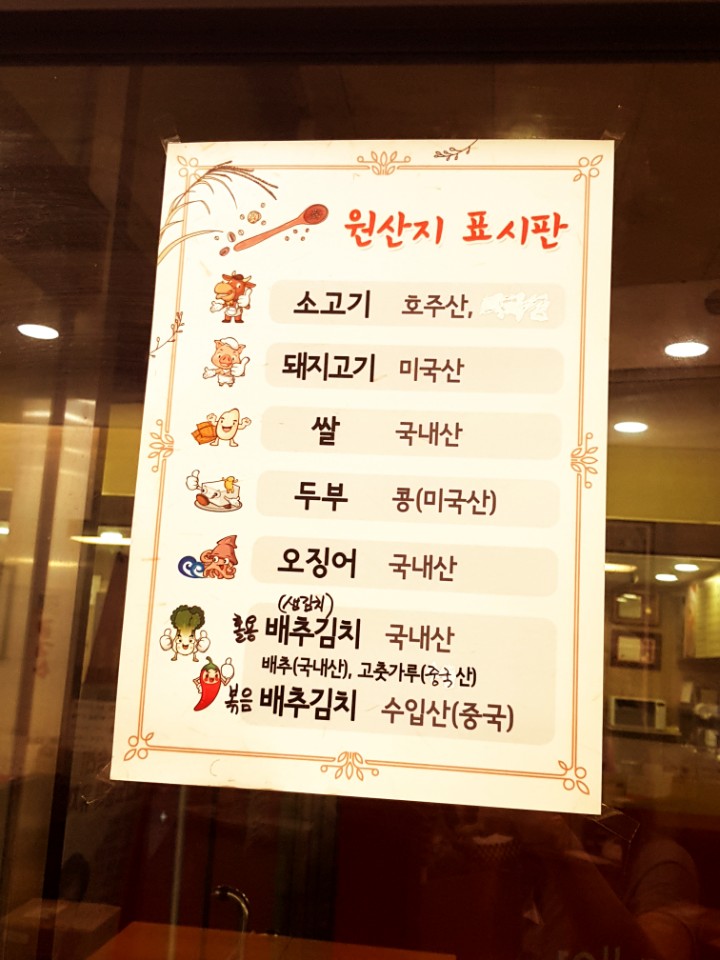 원산지 표시판
소고기 호주산,
돼지고기 미국산
쌀 국내산
두부 콩(미국산)
오징어 국내산
(생김치)
홀용 배추김치 국내산
배추(국내산), 고춧가루(중국산)
볶음 배추김치 수입산(중국)